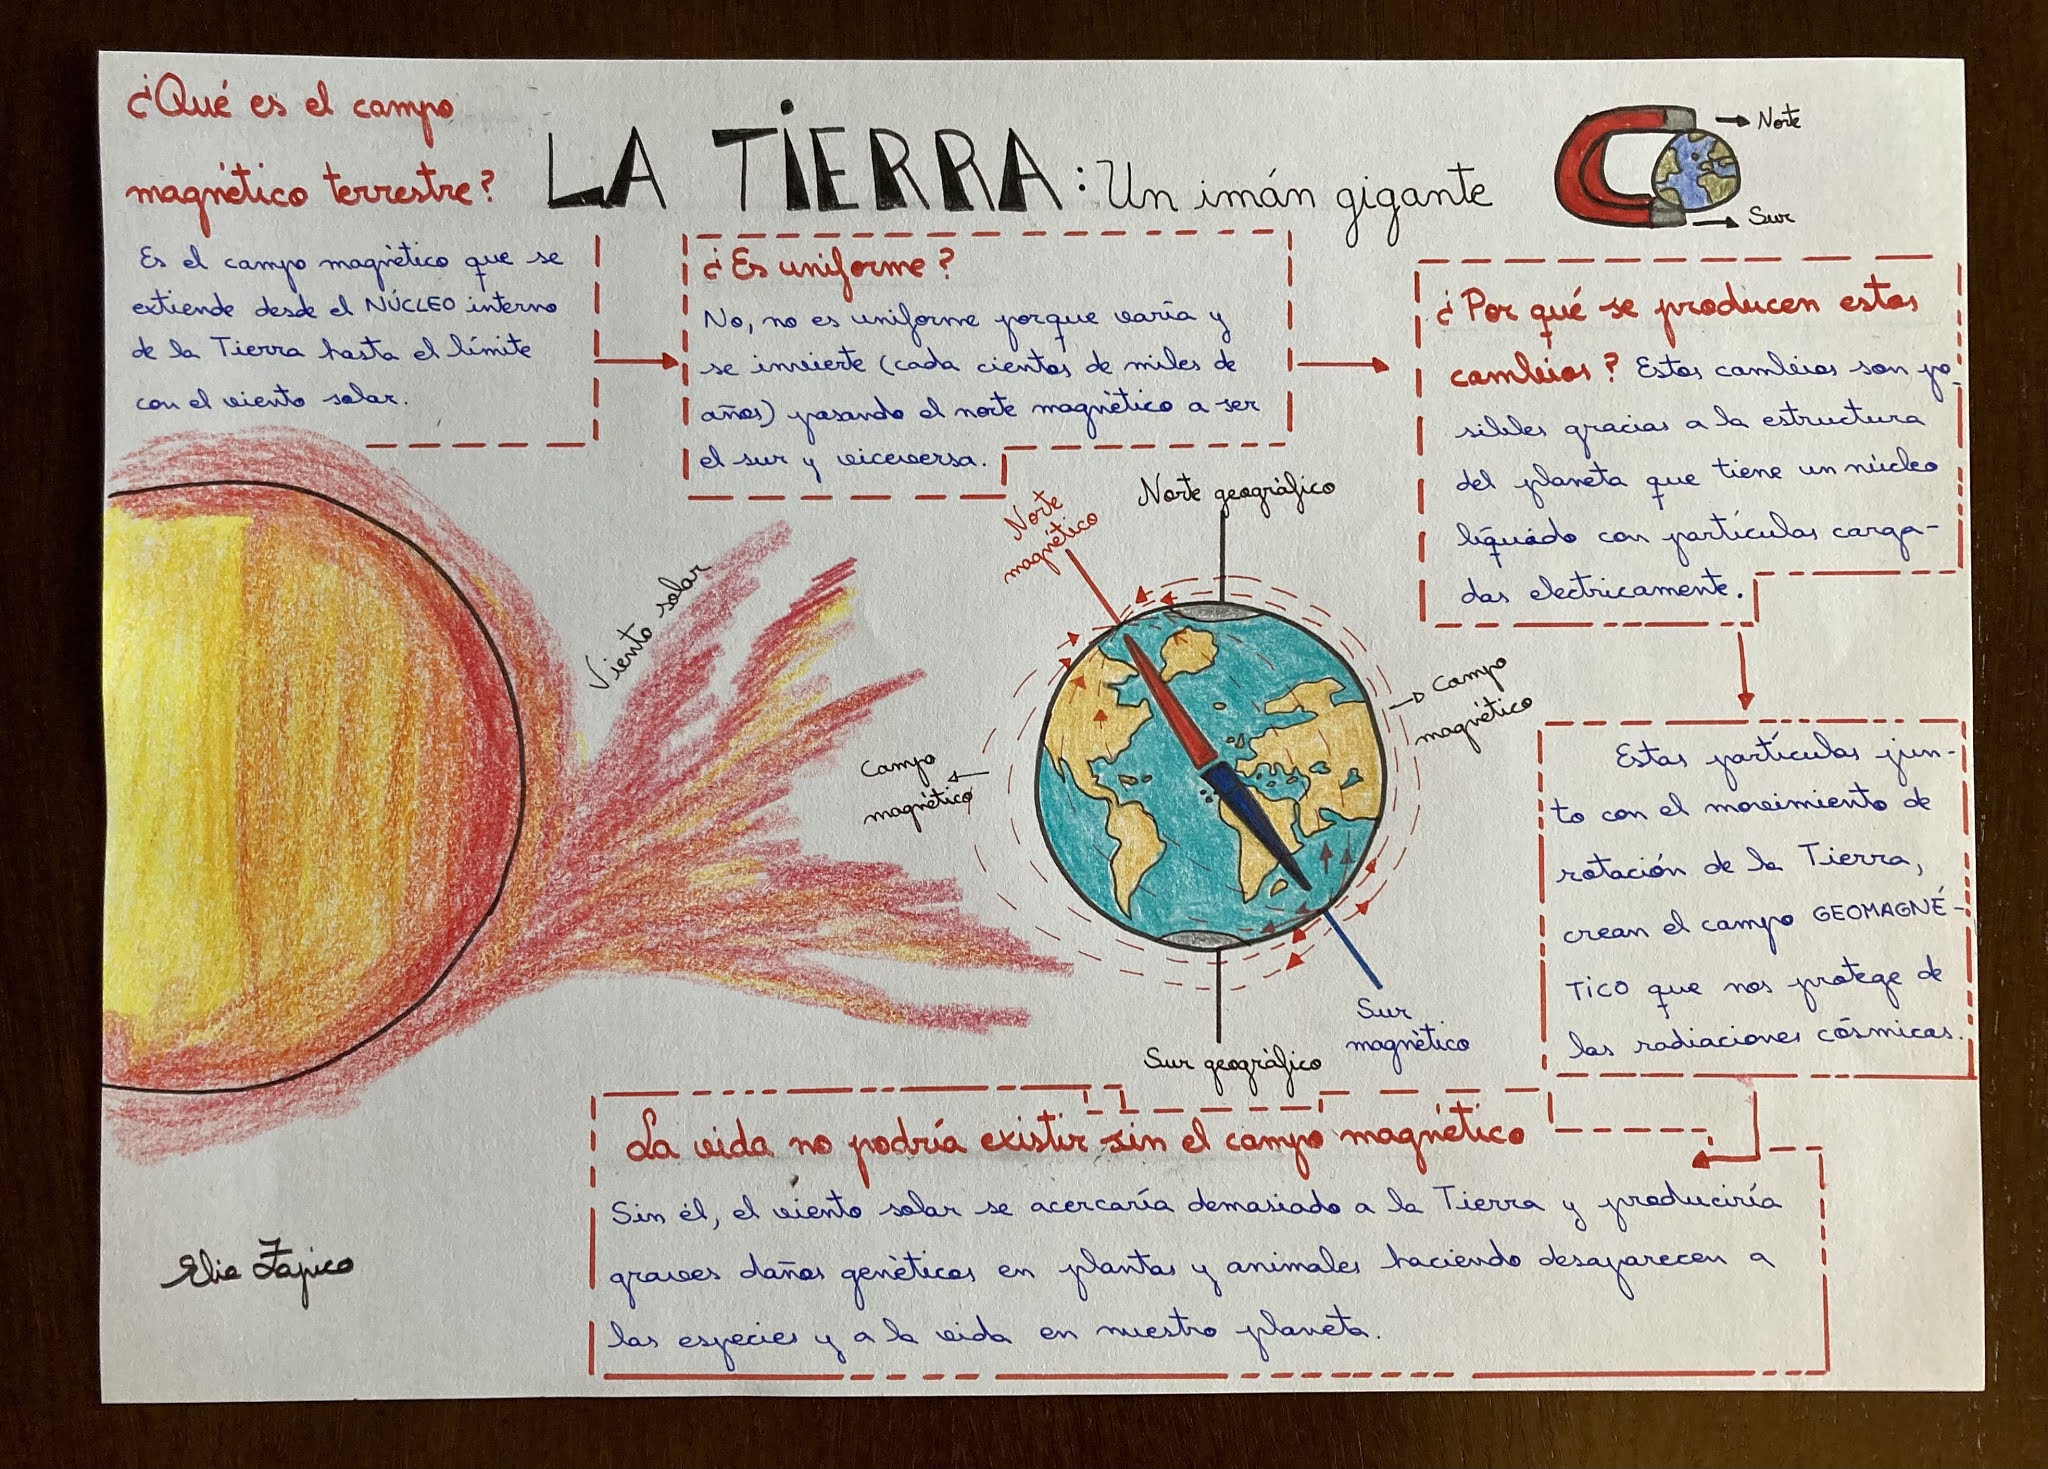 ¿Qué es el campo
magnético terrestre?
LA TIERRA: Un imán gigante
Norte
Sur
Es el campo magnético que se
extiende desde el NÚCLEO interno
de la Tierra hasta el límite
con el viento solar.
¿Es uniforme?
No, no es uniforme porque varía y
se invierte (cada cientos de miles de
años) pasando el norte magnético a ser
el sur y viceversa.
¿Por qué se producen estos
cambios? Estos cambios son po-
sibles gracias a la estructura
del planeta que tiene un núcleo
líquido con partículas carga-
das electricamente.
Estas partículas jun-
to con el movimiento de
rotación de la Tierra,
crean el campo GEOMAGNÉ-
TICO que nos protege de
las radiaciones cósmicas.
Viento solar
Norte
magnético
Norte geográfico
Campo
magnético
Campo
magnético
Sur geográfico
Sur
magnético
La vida no podría existir sin el campo magnético
Sin él, el viento solar se acercaría demasiado a la Tierra y produciría
graves daños genéticos en plantas y animales haciendo desaparecen a
las especies y a la vida en nuestro planeta.